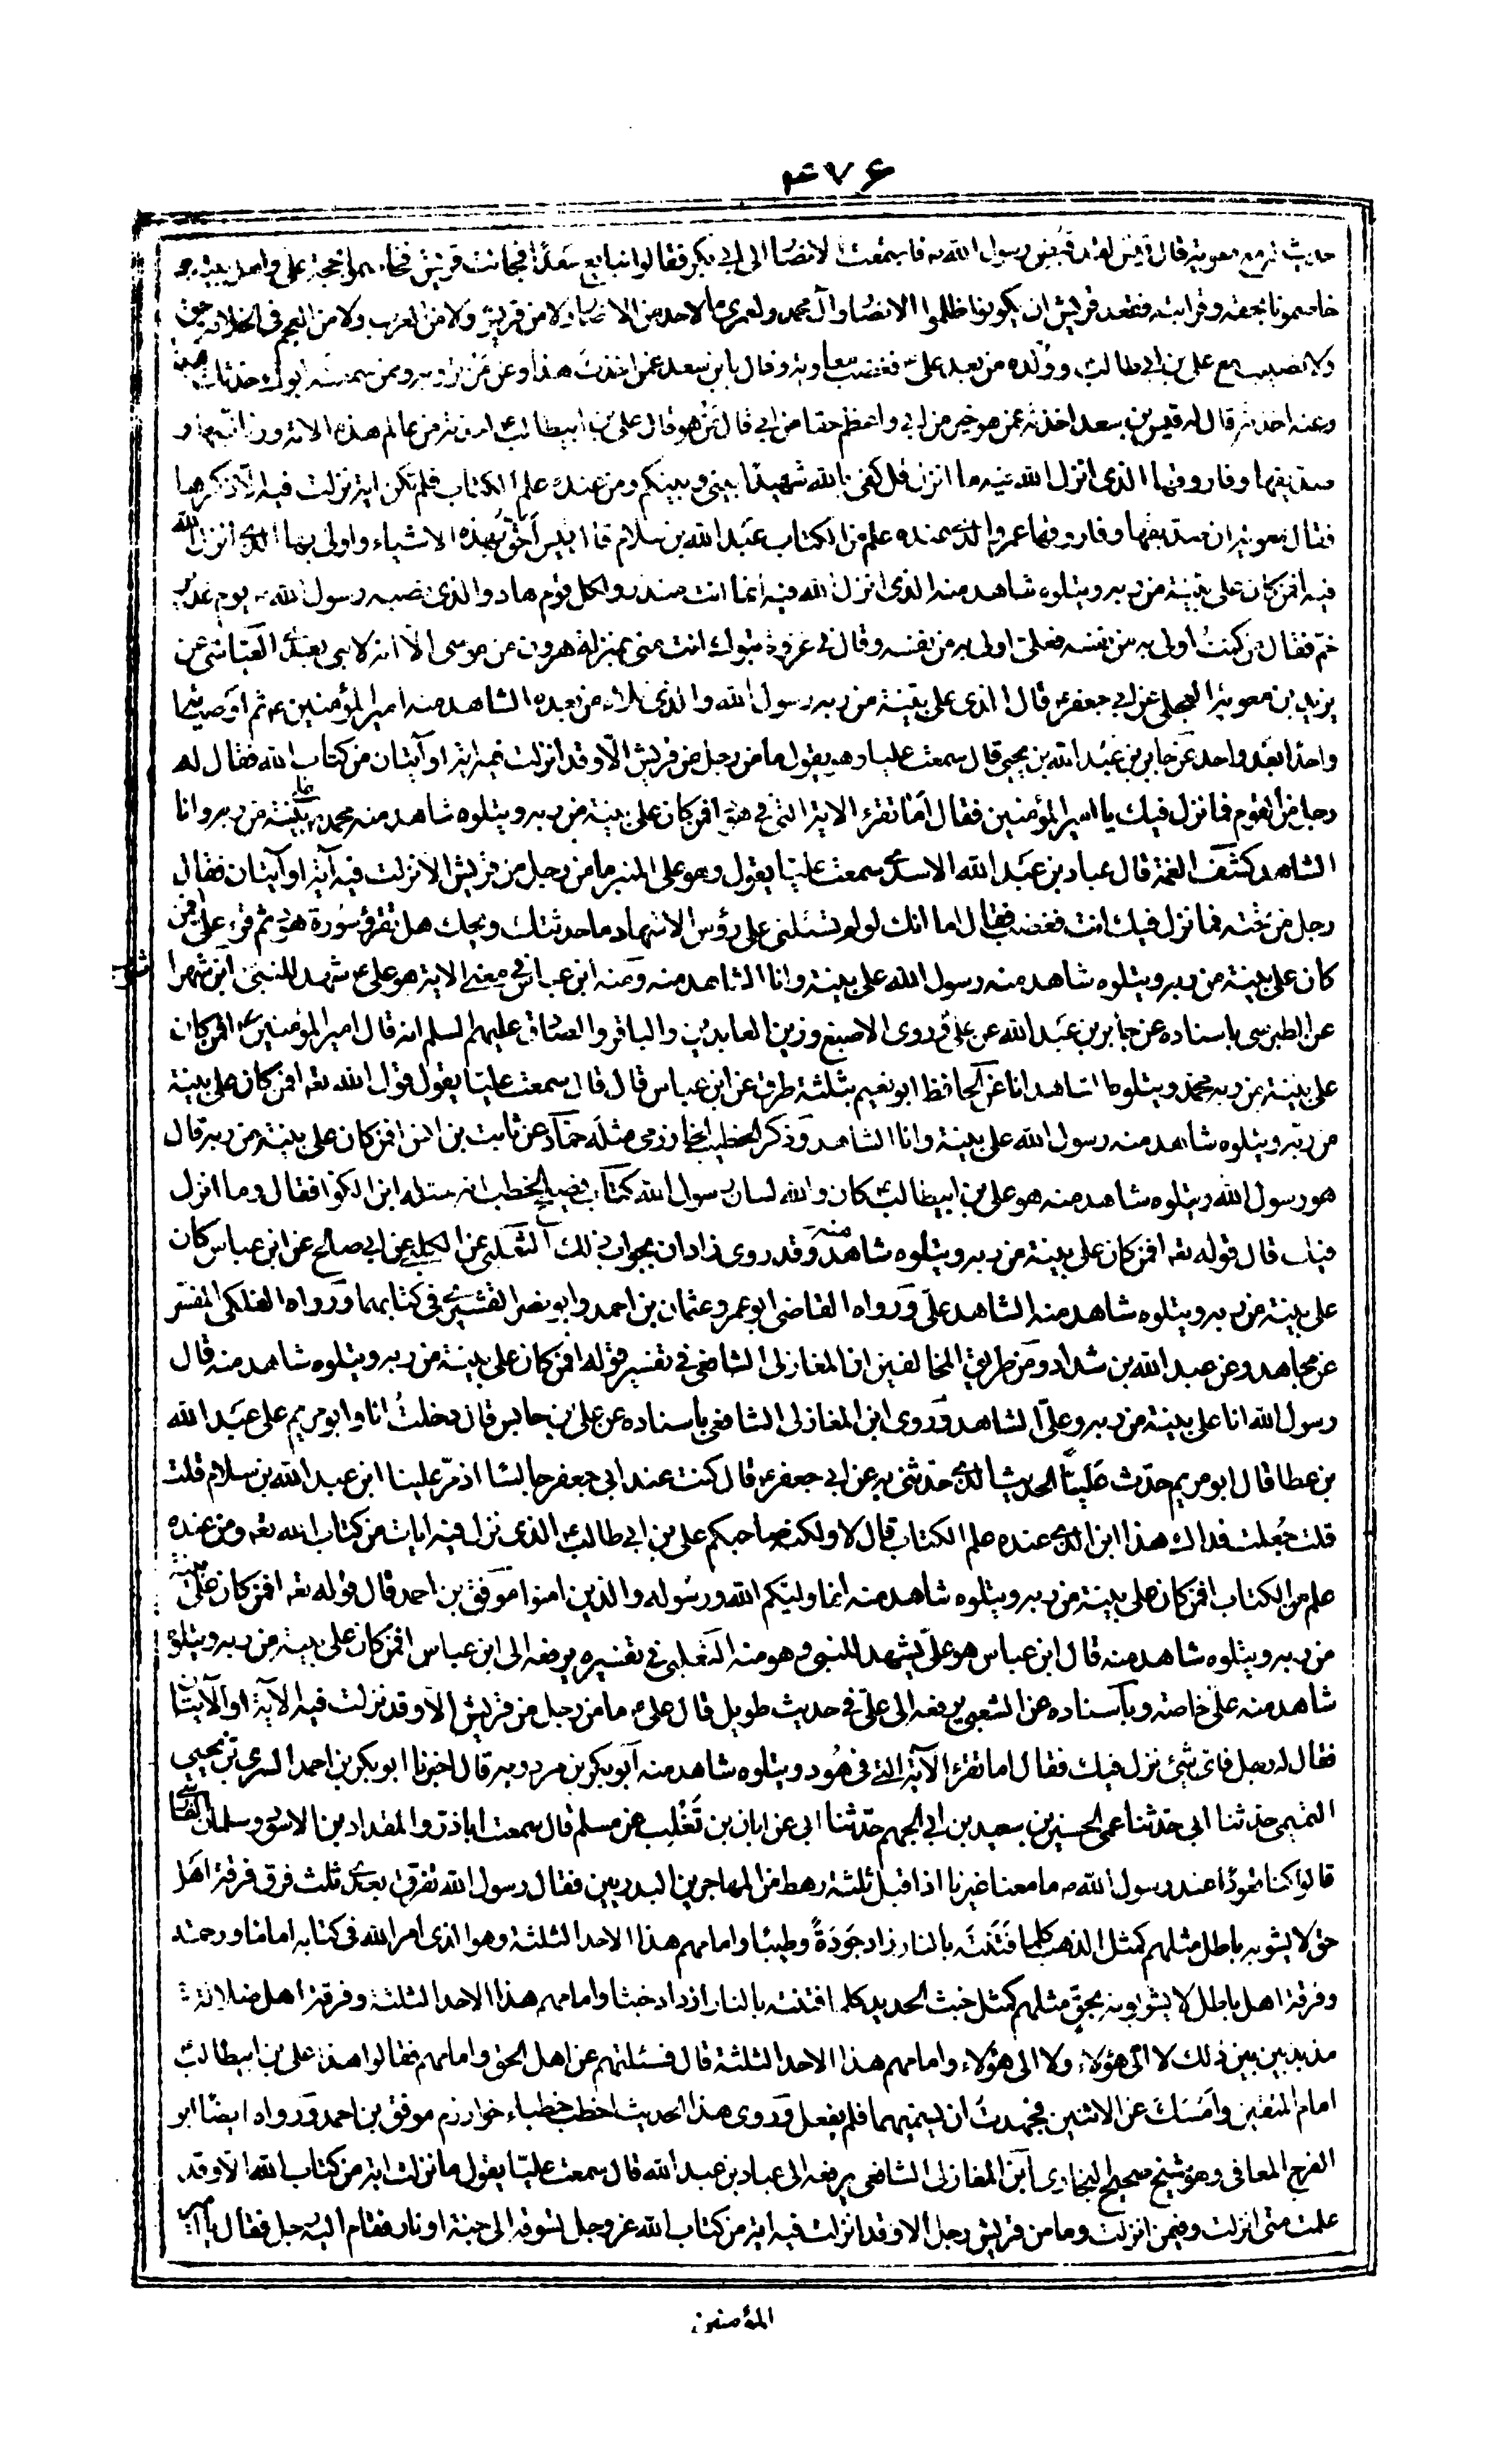 ۴۷۶
حديث له مع معوية قال قيس لقد قبض رسول الله ص فاجتمعت الانصار الى ابى بكر فقالوا نبايع سعدا فجائت قريش فخا بحجة على واهل بيته
خاصمونا بحقه وقرابته فما يعد قريش ان يكونوا ظلموا الانصار وآل محمد ولعمرى ما لاحد من الانصار ولا من قريش ولا من العرب ولا من العجم فى الخلافة حق
ولا نصيب مع على بن ابى طالب وولده من بعد على ع فغضب معاوية وقال يابن سعد عمن اخذت هذا وعن من ترويه وممن سمعته ابوك حدثك هذا
وعنه اخذته قال له قيس بن سعد اخذته عمن هو خير من ابى واعظم حقا من ابى قال من هو قال على بن ابيطالب عالم هذه الامة وربانيها و
صديقها وفاروقها الذى انزل الله فيه ما انزل قل كفى بالله شهيدا بينى وبينكم ومن عنده علم الكتاب فلم تكن اية نزلت فيه الا ذكرها
فقال معوية ان صديقها وفاروقها عمر والذى عنده علم من الكتاب عبد الله بن سلام قال قيس احق بهذه الاشياء واولى بها الذى انزل الله
فيه افمن كان على بينة من ربه ويتلوه شاهد منه الذى انزل الله فيه انما انت منذر ولكل قوم هاد والذى نصبه رسول الله ص يوم غدير
خم فقال من كنت اولى به من نفسه فعلى اولى به من نفسه وقال فى غزوة تبوك انت منى بمنزلة هرون من موسى الا انه لا نبى بعدى العياشى عن
بريد بن معوية العجلى عن ابى جعفر ع قال الذى على بينة من ربه رسول الله والذى تلاه من بعده الشاهد منه امير المؤمنين ع ثم اوصيائه
واحدا بعد واحد عن جابر بن عبد الله بن يحيى قال سمعت عليا وهو يقول ما من رجل من قريش الا وقد انزلت فيه اية او آيتان من كتاب الله فقال له
رجل من القوم فما نزل فيك يا امير المؤمنين فقال اما تقرء الاية التى فى هود افمن كان على بينة من ربه ويتلوه شاهد منه محمد على بينة من ربه وانا
الشاهد كشف الغمة قال عباد بن عبد الله الاسدى سمعت عليا يقول وهو على المنبر ما من رجل من قريش الا نزلت فيه آية او آيتان فقال
رجل من تحته فما نزل فيك انت فغضب فقال اما انك لو لم تسئلنى على رؤس الاشهاد ما حدثتك ويحك هل تقرء سورة هود ثم قرء على افمن
كان على بينة من ربه ويتلوه شاهد منه رسول الله على بينة وانا الشاهد منه وعنه ابن عباس فى معنى الاية هو على ع شهد للنبى ابن شهرا شوب
عن الطبرسى باسناده عن جابر بن عبد الله عن على ع روى الاصبغ وزين العابدين والباقر والصادق عليهم السلم انه قال امير المؤمنين ع افمن كان
على بينة من ربه محمد ويتلوه شاهد انا عن الحافظ ابو نعيم بثلثة طرق عن ابن عباس قال قال سمعت عليا يقول قول الله تعه افمن كان على بينة
من ربه ويتلوه شاهد منه رسول الله على بينة وانا الشاهد وذكر الخطيب الخوارزمى مثله حماد عن ثابت بن انس افمن كان على بينة من ربه قال
هو رسول الله ويتلوه شاهد منه هو على بن ابيطالب كان والله لسان رسول الله كتاب فصيح الخطب انه سئله ابن الكوا فقال وما انزل
فيك قال قوله تعه افمن كان على بينة من ربه ويتلوه شاهد منه وقد روى زادان بجواب ذلك الثعلبى عن الكلبى عن ابى صالح عن ابن عباس كان
على بينة من ربه ويتلوه شاهد منه الشاهد على ورواه القاضى ابو عمرو عثمان بن احمد وابو نصر القشيرى فى كتابهما ورواه الفلكى المفسر
عن مجاهد وعن عبد الله بن شداد ومن طريق المخالفين ان المغازلى الشافعى فى تفسير قوله افمن كان على بينة من ربه ويتلوه شاهد منه قال
رسول الله انا على بينة من ربه وعلى الشاهد وروى ابن المغازلى الشافعى باسناده عن على بن حابس قال دخلت انا وابو مريم على عبد الله
بن عطا قال ابو مريم حدث عليا الحديث الذى حدثتنى به عن ابى جعفر ع قال كنت عند ابى جعفر جالسا اذ مر علينا ابن عبد الله بن سلام قلت
قلت جعلت فداك هذا ابن الذى عنده علم الكتاب قال لا ولكنه صاحبكم على بن ابى طالب ع الذى نزل فيه ايات من كتاب الله تعه ومن عنده
علم من الكتاب افمن كان على بينة من ربه ويتلوه شاهد منه انما وليكم الله ورسوله والذين امنوا موفق بن احمد قال قوله تعه افمن كان على بينة
من ربه ويتلوه شاهد منه قال ابن عباس هو على يشهد للنبى ص وهو منه الثعلبى فى تفسيره يرفعه الى ابن عباس افمن كان على بينة من ربه ويتلوه
شاهد منه على خاصة وباسناده عن الشعبى يرفعه الى على فى حديث طويل قال على ع ما من رجل من قريش الا وقد نزلت فيه الآية او الآيتان
فقال له رجل فاى شئ نزل فيك فقال اما تقرء الآية التى فى هود ويتلوه شاهد منه ابو بكر بن مردويه قال اخبرنا ابو بكر بن احمد السرى بن يحيى
التميمى حدثنا ابى حدثنا عمى الحسين بن سعيد بن ابى الجهم حدثنا ابى عن ابان بن تغلب عن مسلم قال سمعت اباذر والمقداد بن الاسود وسلمان الفارسى
قالوا كنا قعودا عند رسول الله ص ما معنا غيرنا اذ اقبل ثلثة رهط من المهاجرين البدريين فقال رسول الله تفرق بعدى ثلث فرق فرقة اهل
حق لا يشوبه باطل مثلهم كمثل الذهب كلما فتنته بالنار زاد جودة وطيبا وامامهم هذا الاحد الثلثة وهو الذى امر الله فى كتابه اماما ورحمة
وفرقة اهل باطل لا يشوبونه بحق مثلهم كمثل خبث الحديد كلما افتنته بالنار ازداد خبثا وامامهم هذا الاحد الثلثة وفرقة اهل ضلالة
مذبذبين بين ذلك لا الى هؤلاء ولا الى هؤلاء وامامهم هذا الاحد الثلثة قال فسئلتهم عن اهل الحق وامامهم فقالوا هذا على بن ابيطالب
امام المتقين وامسك عن الاثنين فجهدت ان يسميهما فلم يفعل وروى هذا الحديث اخطب خطباء خوارزم موفق بن احمد ورواه ايضا ابو
الفرج المعافى وهو شيخ صحيح البخارى ابن المغازلى الشافعى يرفعه الى عباد بن عبد الله قال سمعت عليا يقول ما نزلت اية من كتاب الله الا وقد
علمت متى انزلت وفيمن انزلت وما من قريش رجل الا وقد انزلت فيه اية من كتاب الله عز وجل تسوقه الى جنة او نار فقام اليه رجل فقال يا امير
المؤمنين